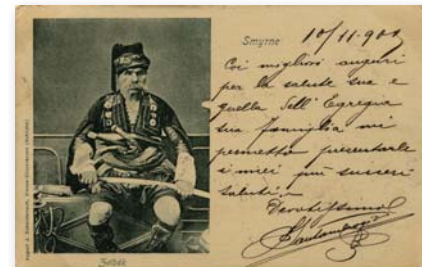 Smyrne 10/11·900
Coi migliori auguri
per la salute sua e
quella dell'Egregia
sua famiglia mi
permetto presentarle
i miei più sinceri
saluti
Devotissimo
Zeïbek